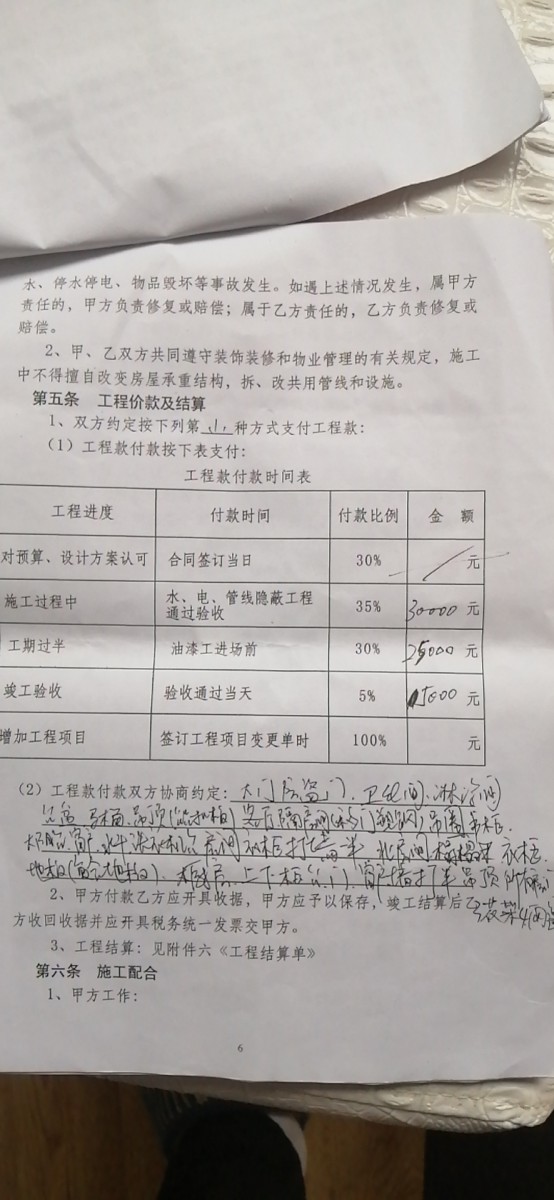 水、停水停电、物品毁坏等事故发生。如遇上述情况发生，属甲方
责任的，甲方负责修复或赔偿；属于乙方责任的，乙方负责修复或
赔偿。
2、甲、乙双方共同遵守装饰装修和物业管理的有关规定，施工
中不得擅自改变房屋承重结构，拆、改共用管线和设施。
第五条 工程价款及结算
1、双方约定按下列第 (1) 种方式支付工程款：
（1）工程款付款按下表支付：
工程款付款时间表
工程进度 付款时间 付款比例 金 额
对预算、设计方案认可 合同签订当日 30% / 元
施工过程中 水、电、管线隐蔽工程通过验收 35% 30000 元
工期过半 油漆工进场前 30% 25000 元
竣工验收 验收通过当天 5% 15000 元
增加工程项目 签订工程项目变更单时 100% 元
（2）工程款付款双方协商约定：大门 卫生间
吊顶 房间
房间 打 北房间 衣柜
地板 上下柜 吊顶
2、甲方付款乙方应开具收据，甲方应予以保存，竣工结算后乙
方收回收据并应开具税务统一发票交甲方。
3、工程结算：见附件六《工程结算单》
第六条 施工配合
1、甲方工作：
6